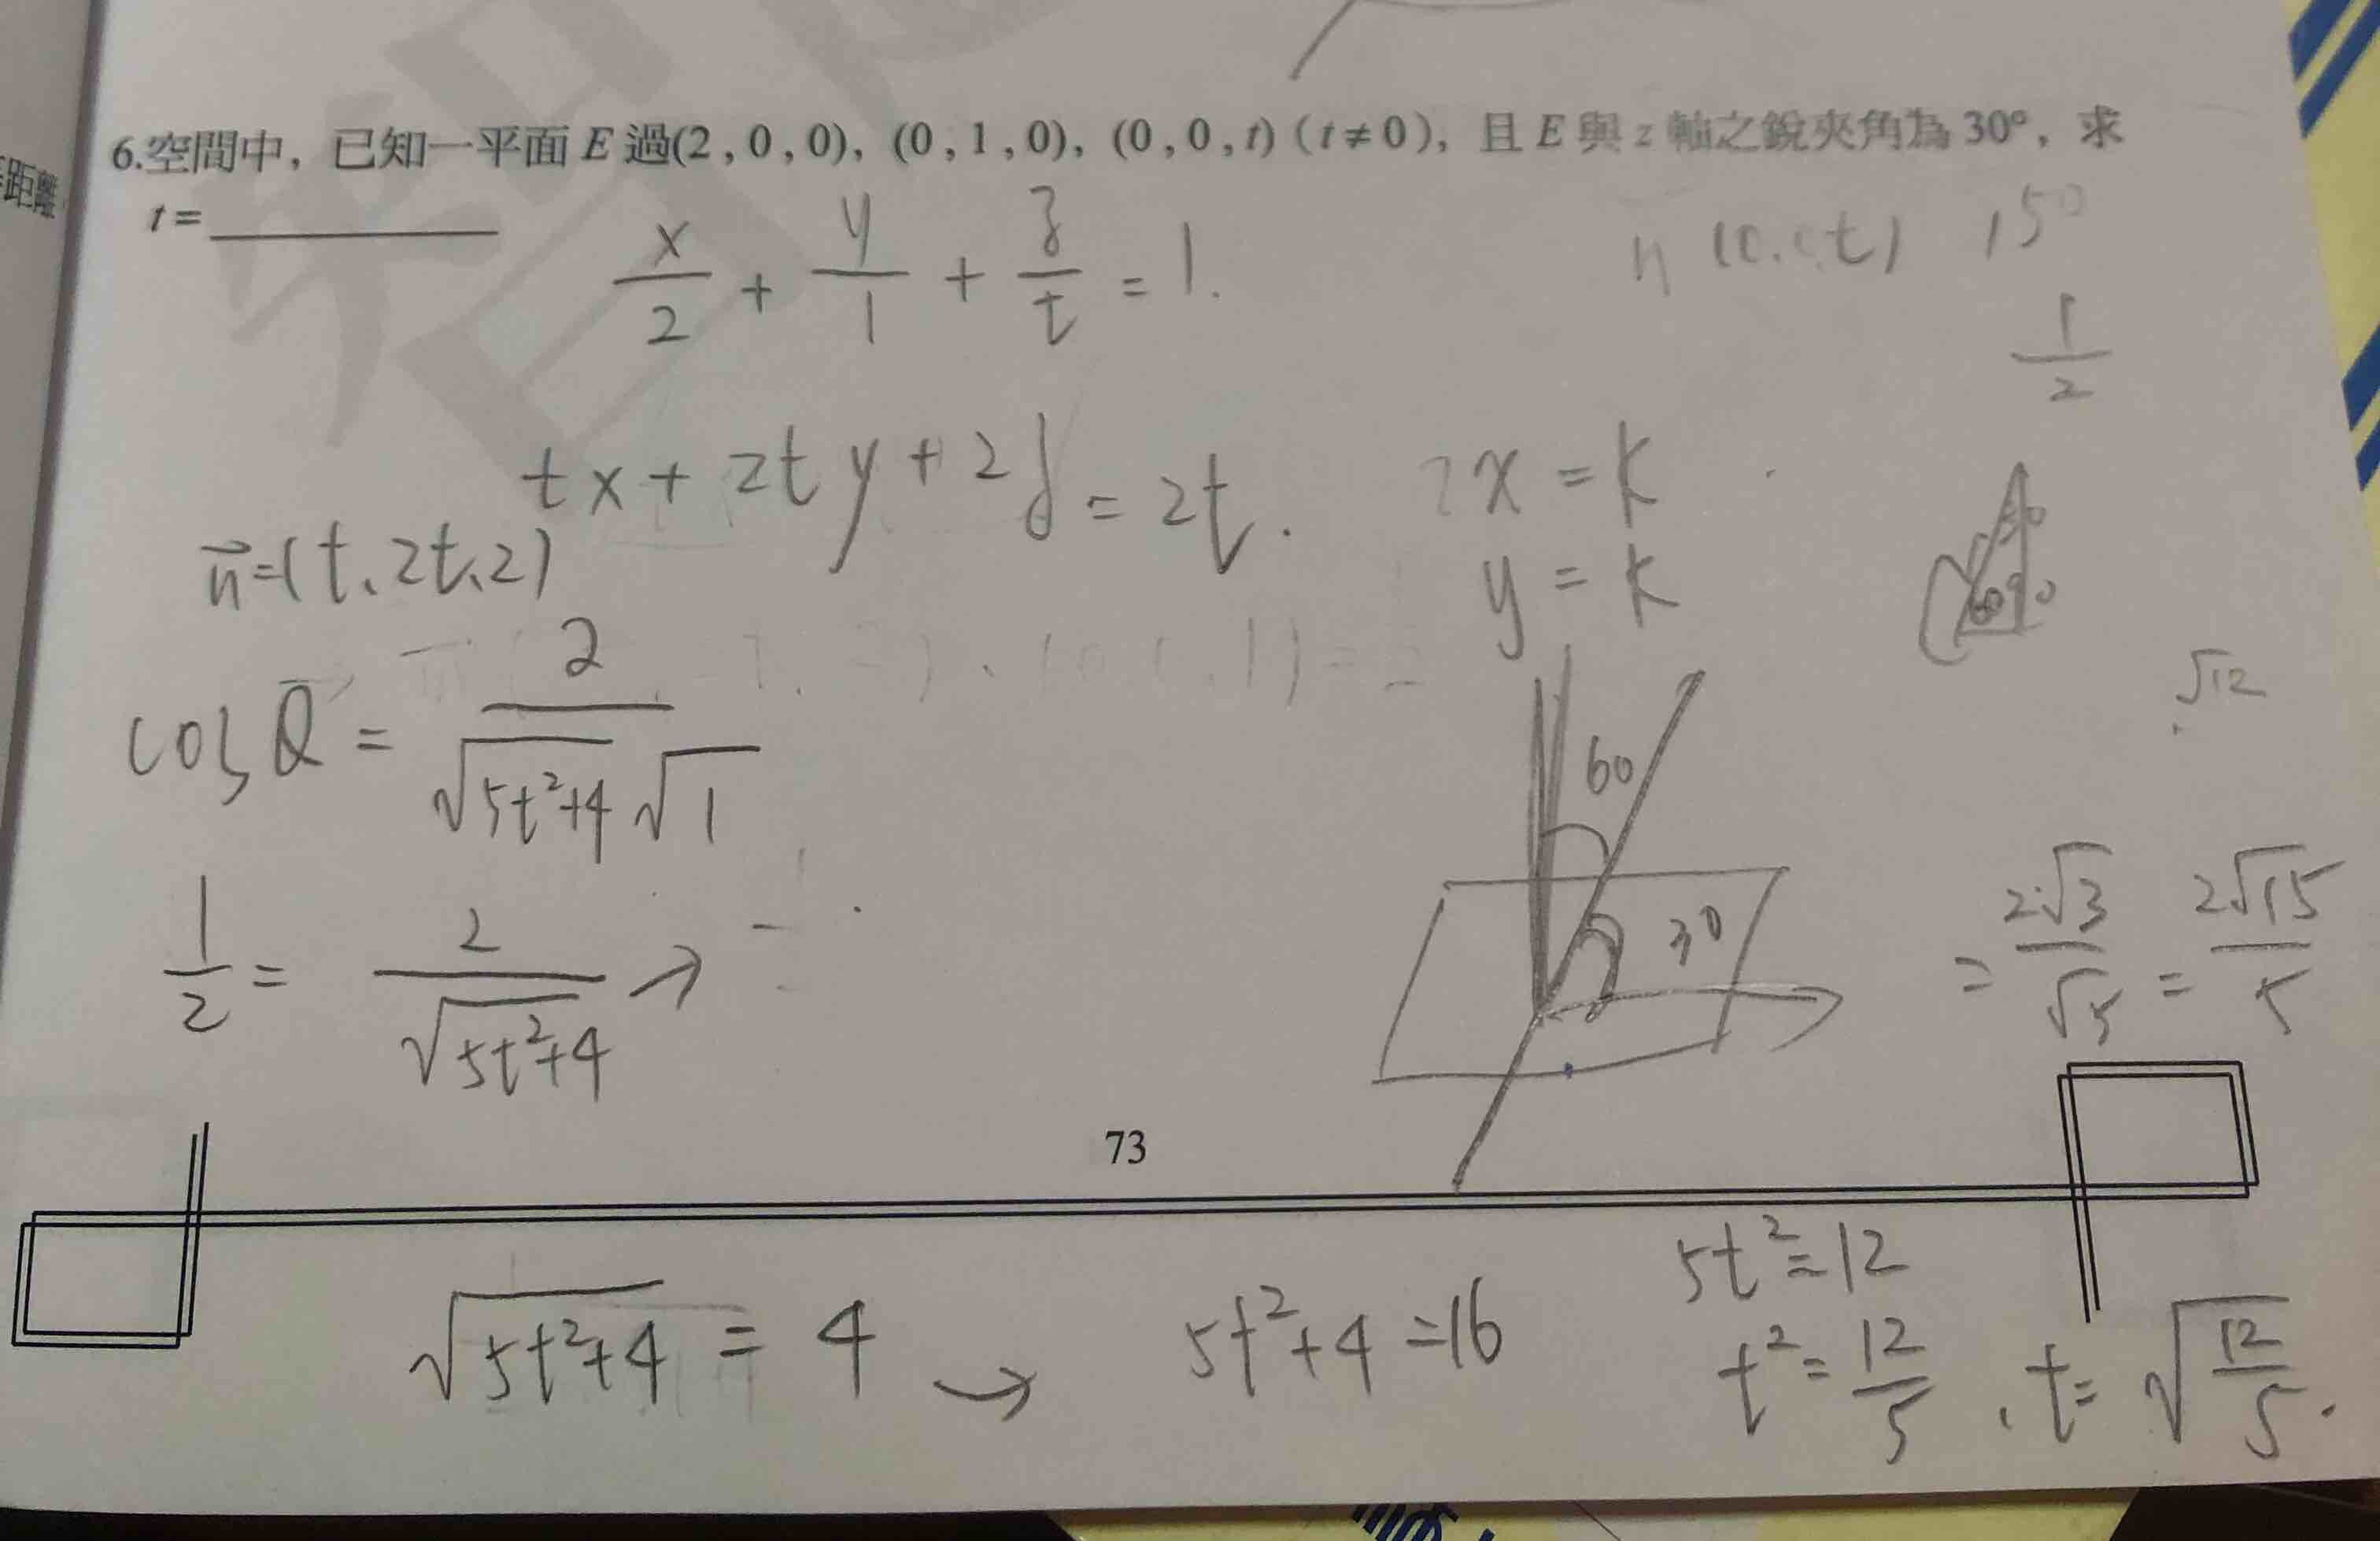 距離
6.空間中，已知一平面 E 過(2 , 0 , 0)，(0 , 1 , 0)，(0 , 0 , t)（t≠0），且 E 與 z 軸之銳夾角為 30°，求
t = ________
x/2 + y/1 + z/t = 1.
1/2
tx + 2ty + 2z = 2t.
x = k
y = k
n⃗=(t、2t、2)
cos θ = 2/(√(5t²+4) √1)
60
30
√12
1/2 = 2/√(5t²+4) →
= 2√3/√5 = 2√15/5
73
√(5t²+4) = 4 → 5t²+4 =16
5t²=12
t²=12/5 , t= √(12/5).